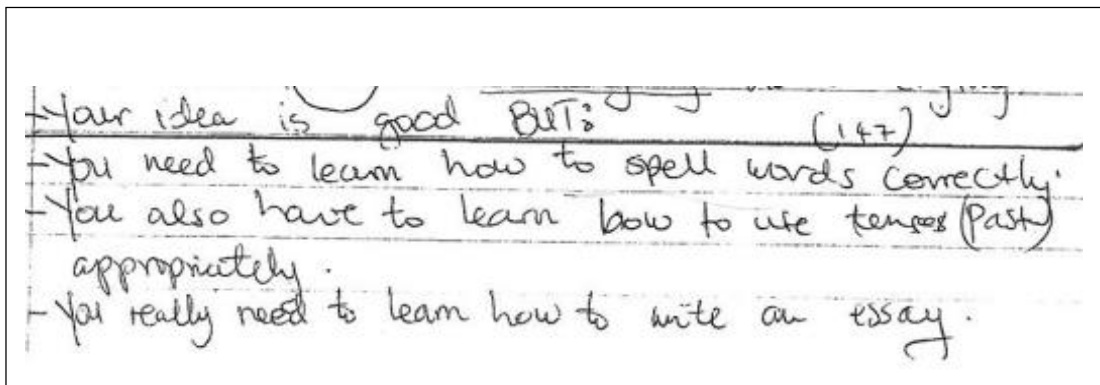 - Your idea is good BUT: (147)
- You need to learn how to spell words correctly.
- You also have to learn how to use tenses (Past)
appropriately.
- You really need to learn how to write an essay.